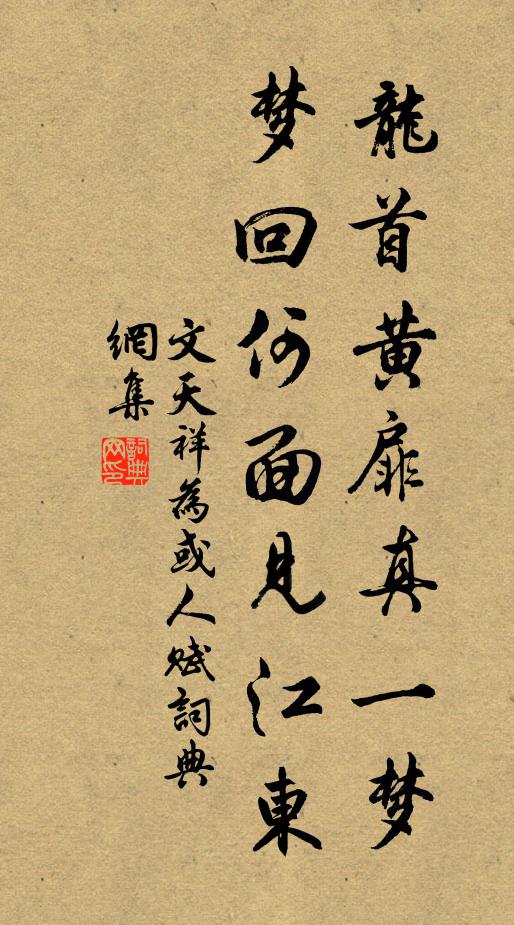 龍首黄扉真一梦
梦回何面見江東
文天祥為或人赋詞典
網集
詞典网印